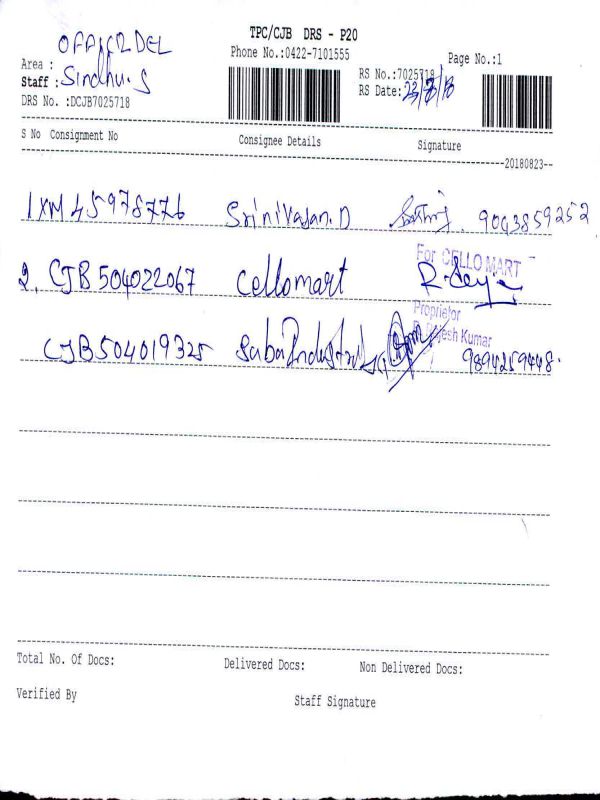 TPC/CJB DRS - P20
OFFICE DEL
Phone No.:0422-7101555
Page No.:1
Area :
Staff : Sindhu.S
RS No.:7025718
RS Date: 23/8/18
DRS No. :DCJB7025718
S No Consignment No Consignee Details Signature
20180823
1 XM 45978776 Srinivasan.D 9043859252
For CELLO MART
2. CJB 504022067 Cellomart
Proprietor
Rajesh Kumar
CJB504019325 Saba Industries 9894259448
Total No. Of Docs: Delivered Docs: Non Delivered Docs:
Verified By Staff Signature